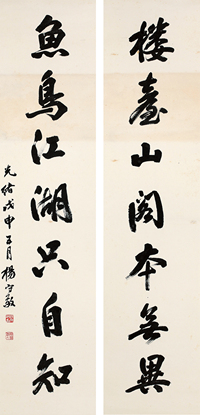 楼臺山阁本無異
魚鳥江湖只自知
光绪戊申五月楊守敬